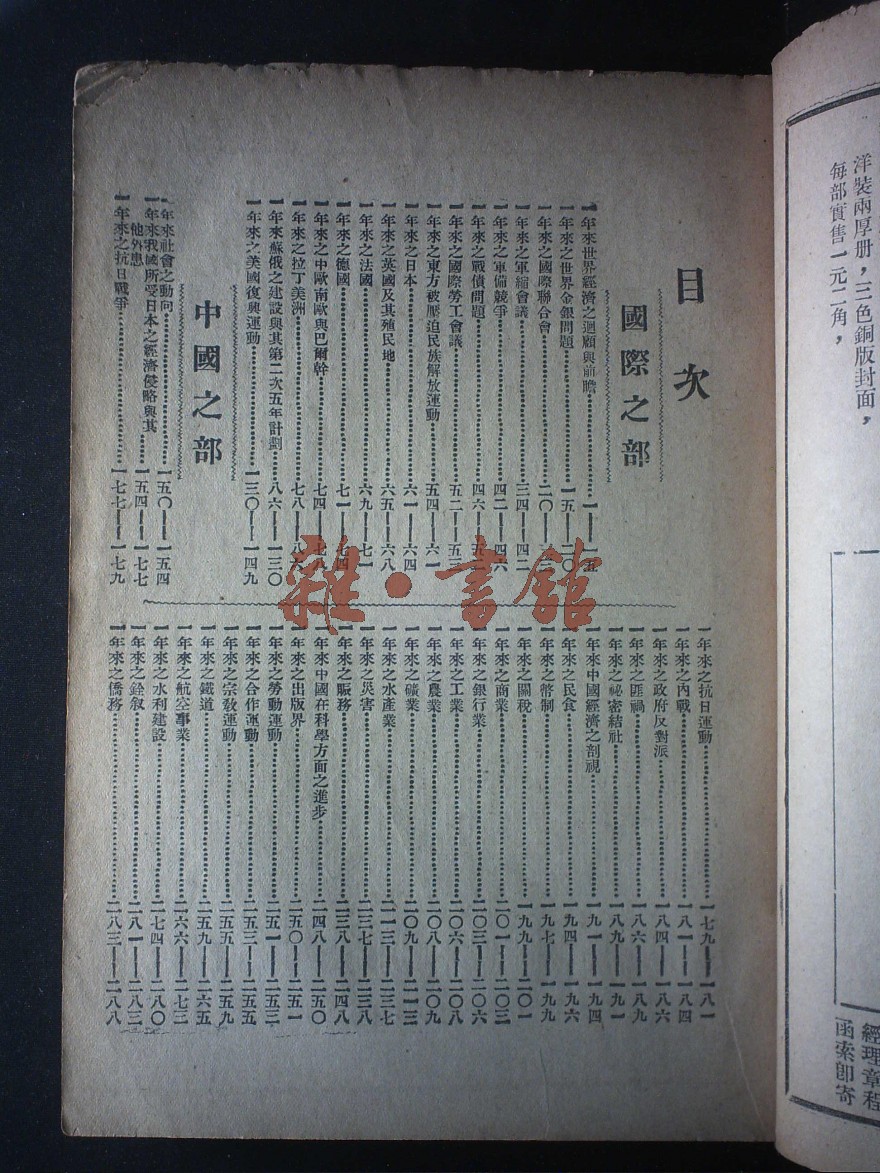 洋裝兩厚册，三色銅版封面，
每部實售一元二角，
經理章程
函索卽寄
目次
國際之部
一年來世界經濟之迴顧與前瞻 一——一五
一年來之世界金銀問題 一五——二〇
一年來之國際聯合會 二〇——三四
一年來之軍縮會議 三四——四二
一年來之軍備競爭 四二——四六
一年來之戰債問題 四六——五二
一年來之國際勞工會議 五二——五三
一年來之東方被壓迫民族解放運動 五四——六一
一年來之日本 六一——六四
一年來之英國及其殖民地 六五——六八
一年來之法國 六九——七一
一年來之德國 七一——七四
一年來之中歐南歐與巴爾幹 七四——七八
一年來之拉丁美洲 七八——八六
一年來蘇俄之建設與其第二次五年計劃 八六——一三〇
一年來之美國復興運動 一三〇——一四九
中國之部
一年來社會之動向 一五〇——一五四
一年來我國所受日本之經濟侵略與其
他外患 一五四——一七七
一年來之抗日戰爭 一七七——一七九
一年來之抗日運動 一七九——一八一
一年來之內戰 一八一——一八四
一年來之政府反對派 一八四——一八六
一年來之匪禍 一八六——一八九
一年來之祕密結社 一八九——一九一
一年來中國經濟之剖視 一九一——一九四
一年來之民食 一九四——一九六
一年來之幣制 一九七——一九九
一年來之關稅 一九九——二〇一
一年來之商業 二〇一——二〇三
一年來之銀行業 二〇三——二〇六
一年來之工業 二〇六——二〇八
一年來之農業 二〇八——二〇九
一年來之礦業 二〇九——二一三
一年來之水產業 二一三——二三七
一年來之災害 二三七——二三八
一年來之賑務 二三八——二四八
一年來中國在科學方面之進步 二四八——二五〇
一年來之出版界 二五〇——二五一
一年來之勞動運動 二五一——二五三
一年來之合作運動 二五三——二五五
一年來之宗敎運動 二五五——二五九
一年來之鐵道 二五九——二六五
一年來之航空事業 二六六——二七三
一年來之水利建設 二七四——二八〇
一年來之銓叙 二八一——二八三
一年來之僑務 二八三——二八八
雜·書館